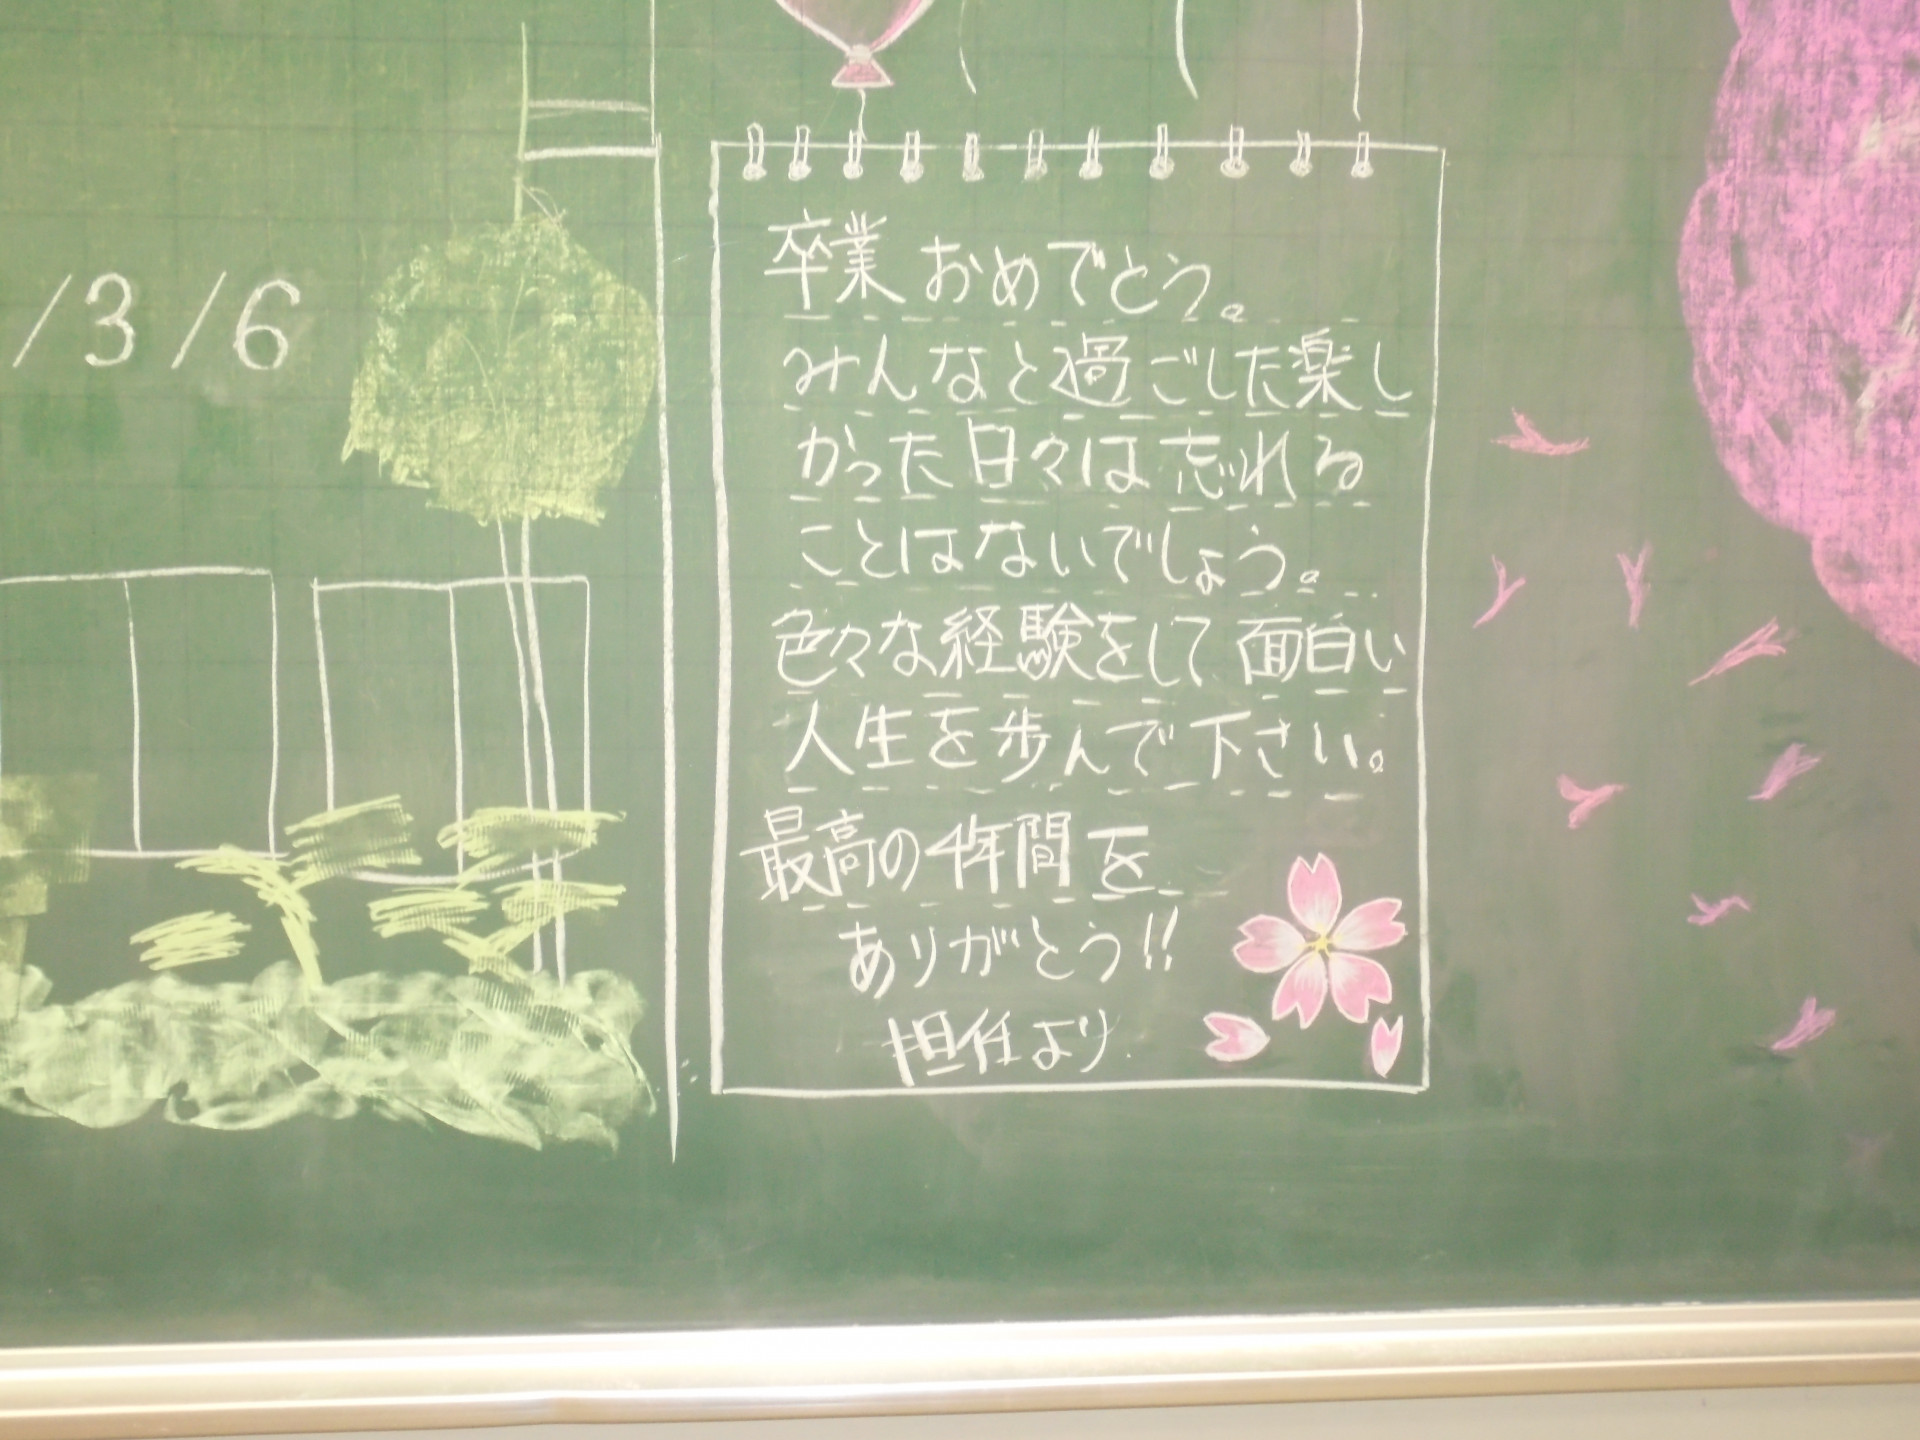 /3/6
卒業おめでとう。
みんなと過ごした楽し
かった日々は忘れる
ことはないでしょう。
色々な経験をして面白い
人生を歩んで下さい。
最高の4年間を
ありがとう!!
担任より